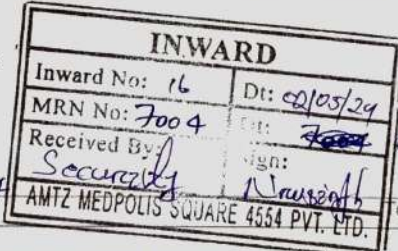 INWARD
Inward No: 16 Dt: 02/05/24
MRN No: 7004 Dt:
Received By: Sign:
Security
AMTZ MEDPOLIS SQUARE 4554 PVT. LTD.